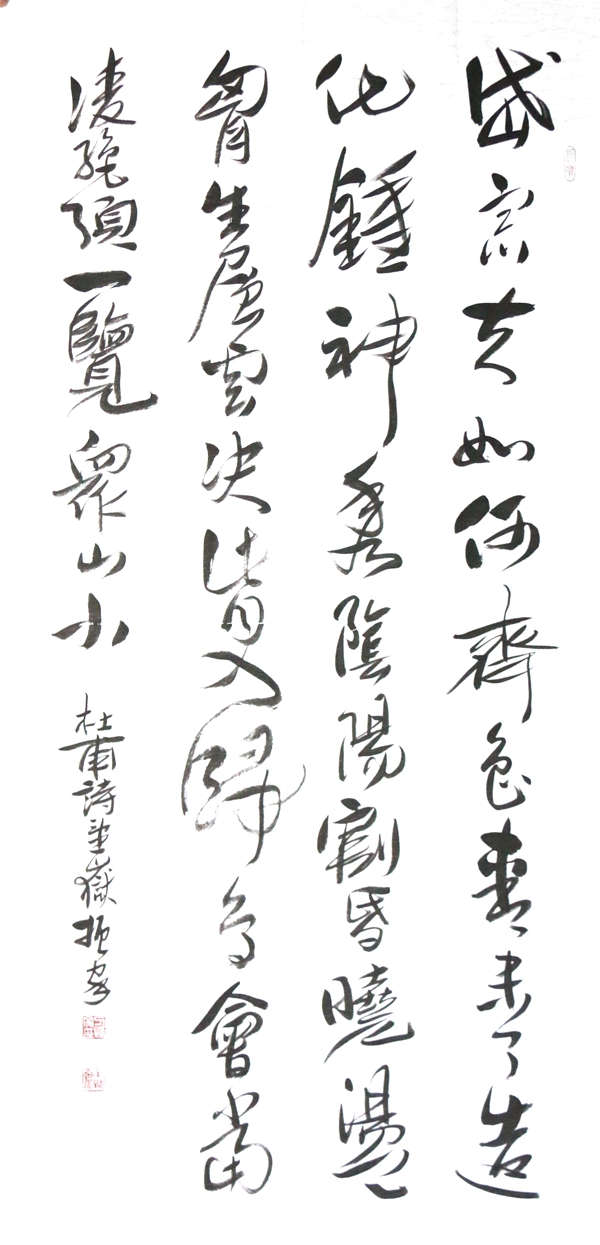 岱宗夫如何齊魯青未了造
化鍾神秀陰陽割昏曉盪
胷生層雲決眥入歸鳥會當
凌絕頂一覽眾山小
杜甫詩望嶽